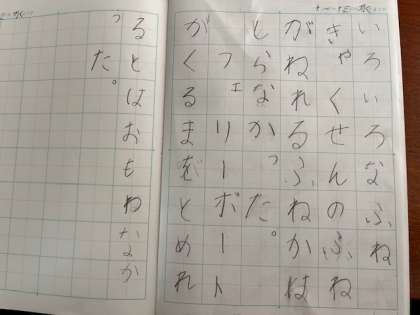 いろいろなふね
きゃくせんのふね
がねれるふねかは
しらなかった。
フェリーボート
がくるまをとめれ
るとはおもわなか
った。